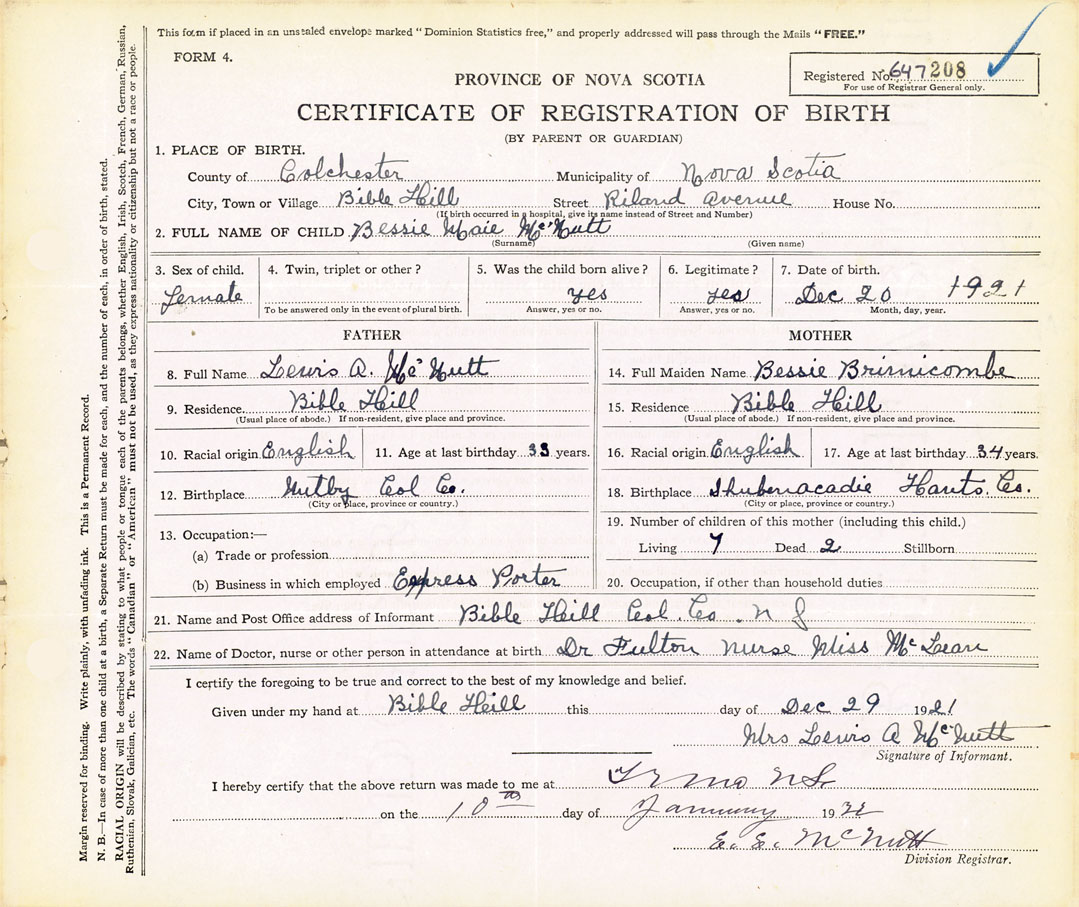 This form if placed in an unsealed envelope marked "Dominion Statistics free," and properly addressed will pass through the Mails "FREE."
FORM 4.
Registered No. 647208
For use of Registrar General only.
PROVINCE OF NOVA SCOTIA
CERTIFICATE OF REGISTRATION OF BIRTH
(BY PARENT OR GUARDIAN)
1. PLACE OF BIRTH.
County of Colchester Municipality of Nova Scotia
City, Town or Village Bible Hill Street Riland Avenue House No.
(If birth occurred in a hospital, give its name instead of Street and Number)
2. FULL NAME OF CHILD Bessie Maie McNutt
(Surname) (Given name)
3. Sex of child. 4. Twin, triplet or other? 5. Was the child born alive? 6. Legitimate? 7. Date of birth.
Female yes yes Dec 20 1921
To be answered only in the event of plural birth. Answer, yes or no. Answer, yes or no. Month, day, year.
FATHER MOTHER
8. Full Name Lewis A. McNutt 14. Full Maiden Name Bessie Brimicombe
9. Residence Bible Hill 15. Residence Bible Hill
(Usual place of abode.) If non-resident, give place and province. (Usual place of abode.) If non-resident, give place and province.
10. Racial origin English 11. Age at last birthday 33 years. 16. Racial origin English 17. Age at last birthday 34 years.
12. Birthplace Nutby Col Co. 18. Birthplace Shubenacadie Hants. Co.
(City or place, province or country.) (City or place, province or country.)
13. Occupation:— 19. Number of children of this mother (including this child.)
(a) Trade or profession Living 7 Dead 2 Stillborn
(b) Business in which employed Express Porter 20. Occupation, if other than household duties
21. Name and Post Office address of Informant Bible Hill Col. Co. N S
22. Name of Doctor, nurse or other person in attendance at birth Dr Fulton Nurse Miss McLean
I certify the foregoing to be true and correct to the best of my knowledge and belief.
Given under my hand at Bible Hill this day of Dec 29 1921
Mrs Lewis A McNutt
Signature of Informant.
I hereby certify that the above return was made to me at Truro N.S.
on the 10th day of January 1922
E. E. McNutt
Division Registrar.
Margin reserved for binding. Write plainly, with unfading ink. This is a Permanent Record.
N. B.—In case of more than one child at a birth, a Separate Return must be made for each, and the number of each, in order of birth, stated.
RACIAL ORIGIN will be described by stating to what people or tongue each of the parents belongs, whether English, Irish, Scotch, French, German, Russian,
Ruthenian, Slovak, Galician, etc. The words "Canadian" or "American" must not be used, as they express nationality or citizenship but not a race or people.